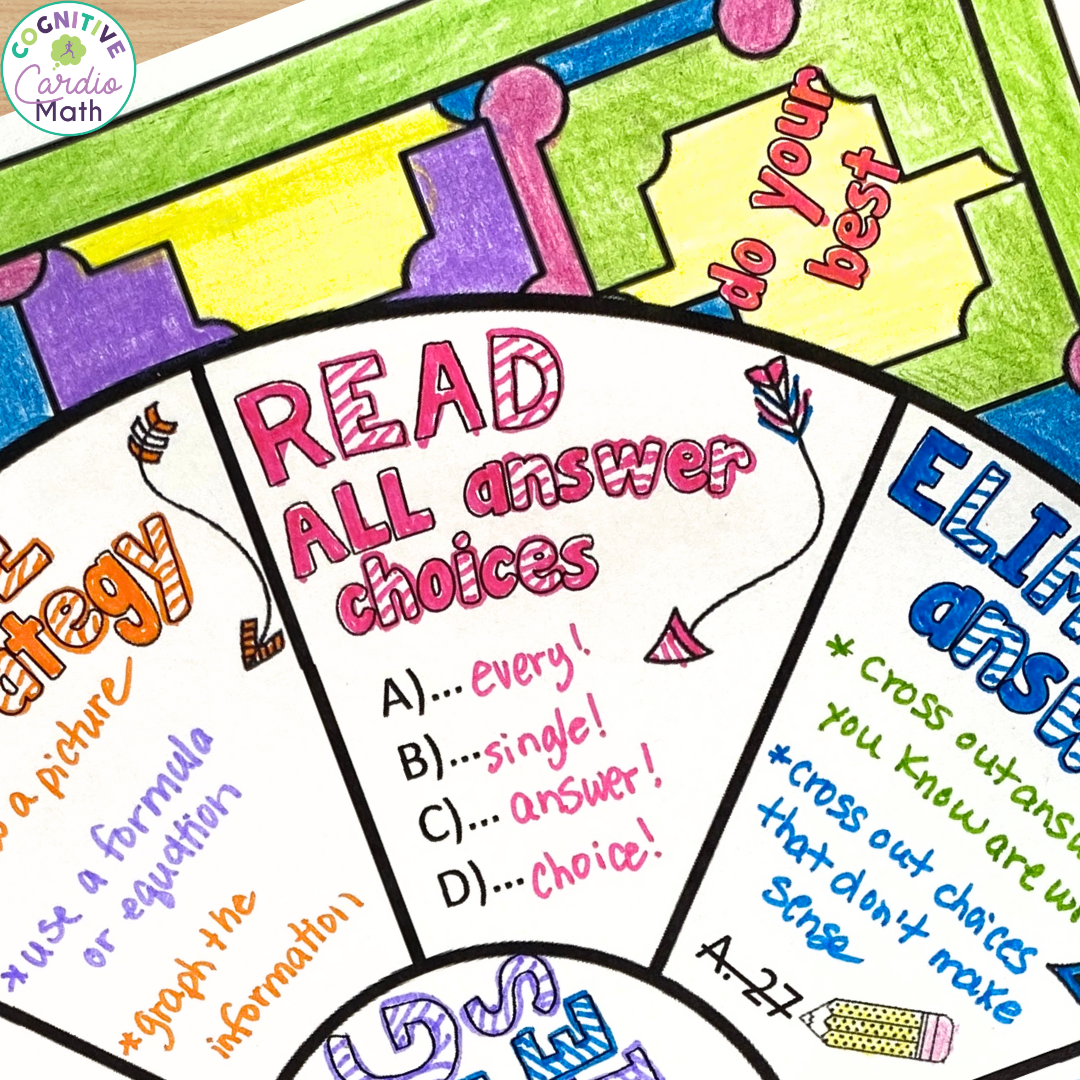 COGNITIVE
Cardio
Math
do your
best
*use a formula
or equation
*graph the
information
READ
ALL answer
choices
A)...every!
B)...single!
C)...answer!
D)...choice!
*cross out
you know are
*cross out choices
that don't make
sense
A. 27